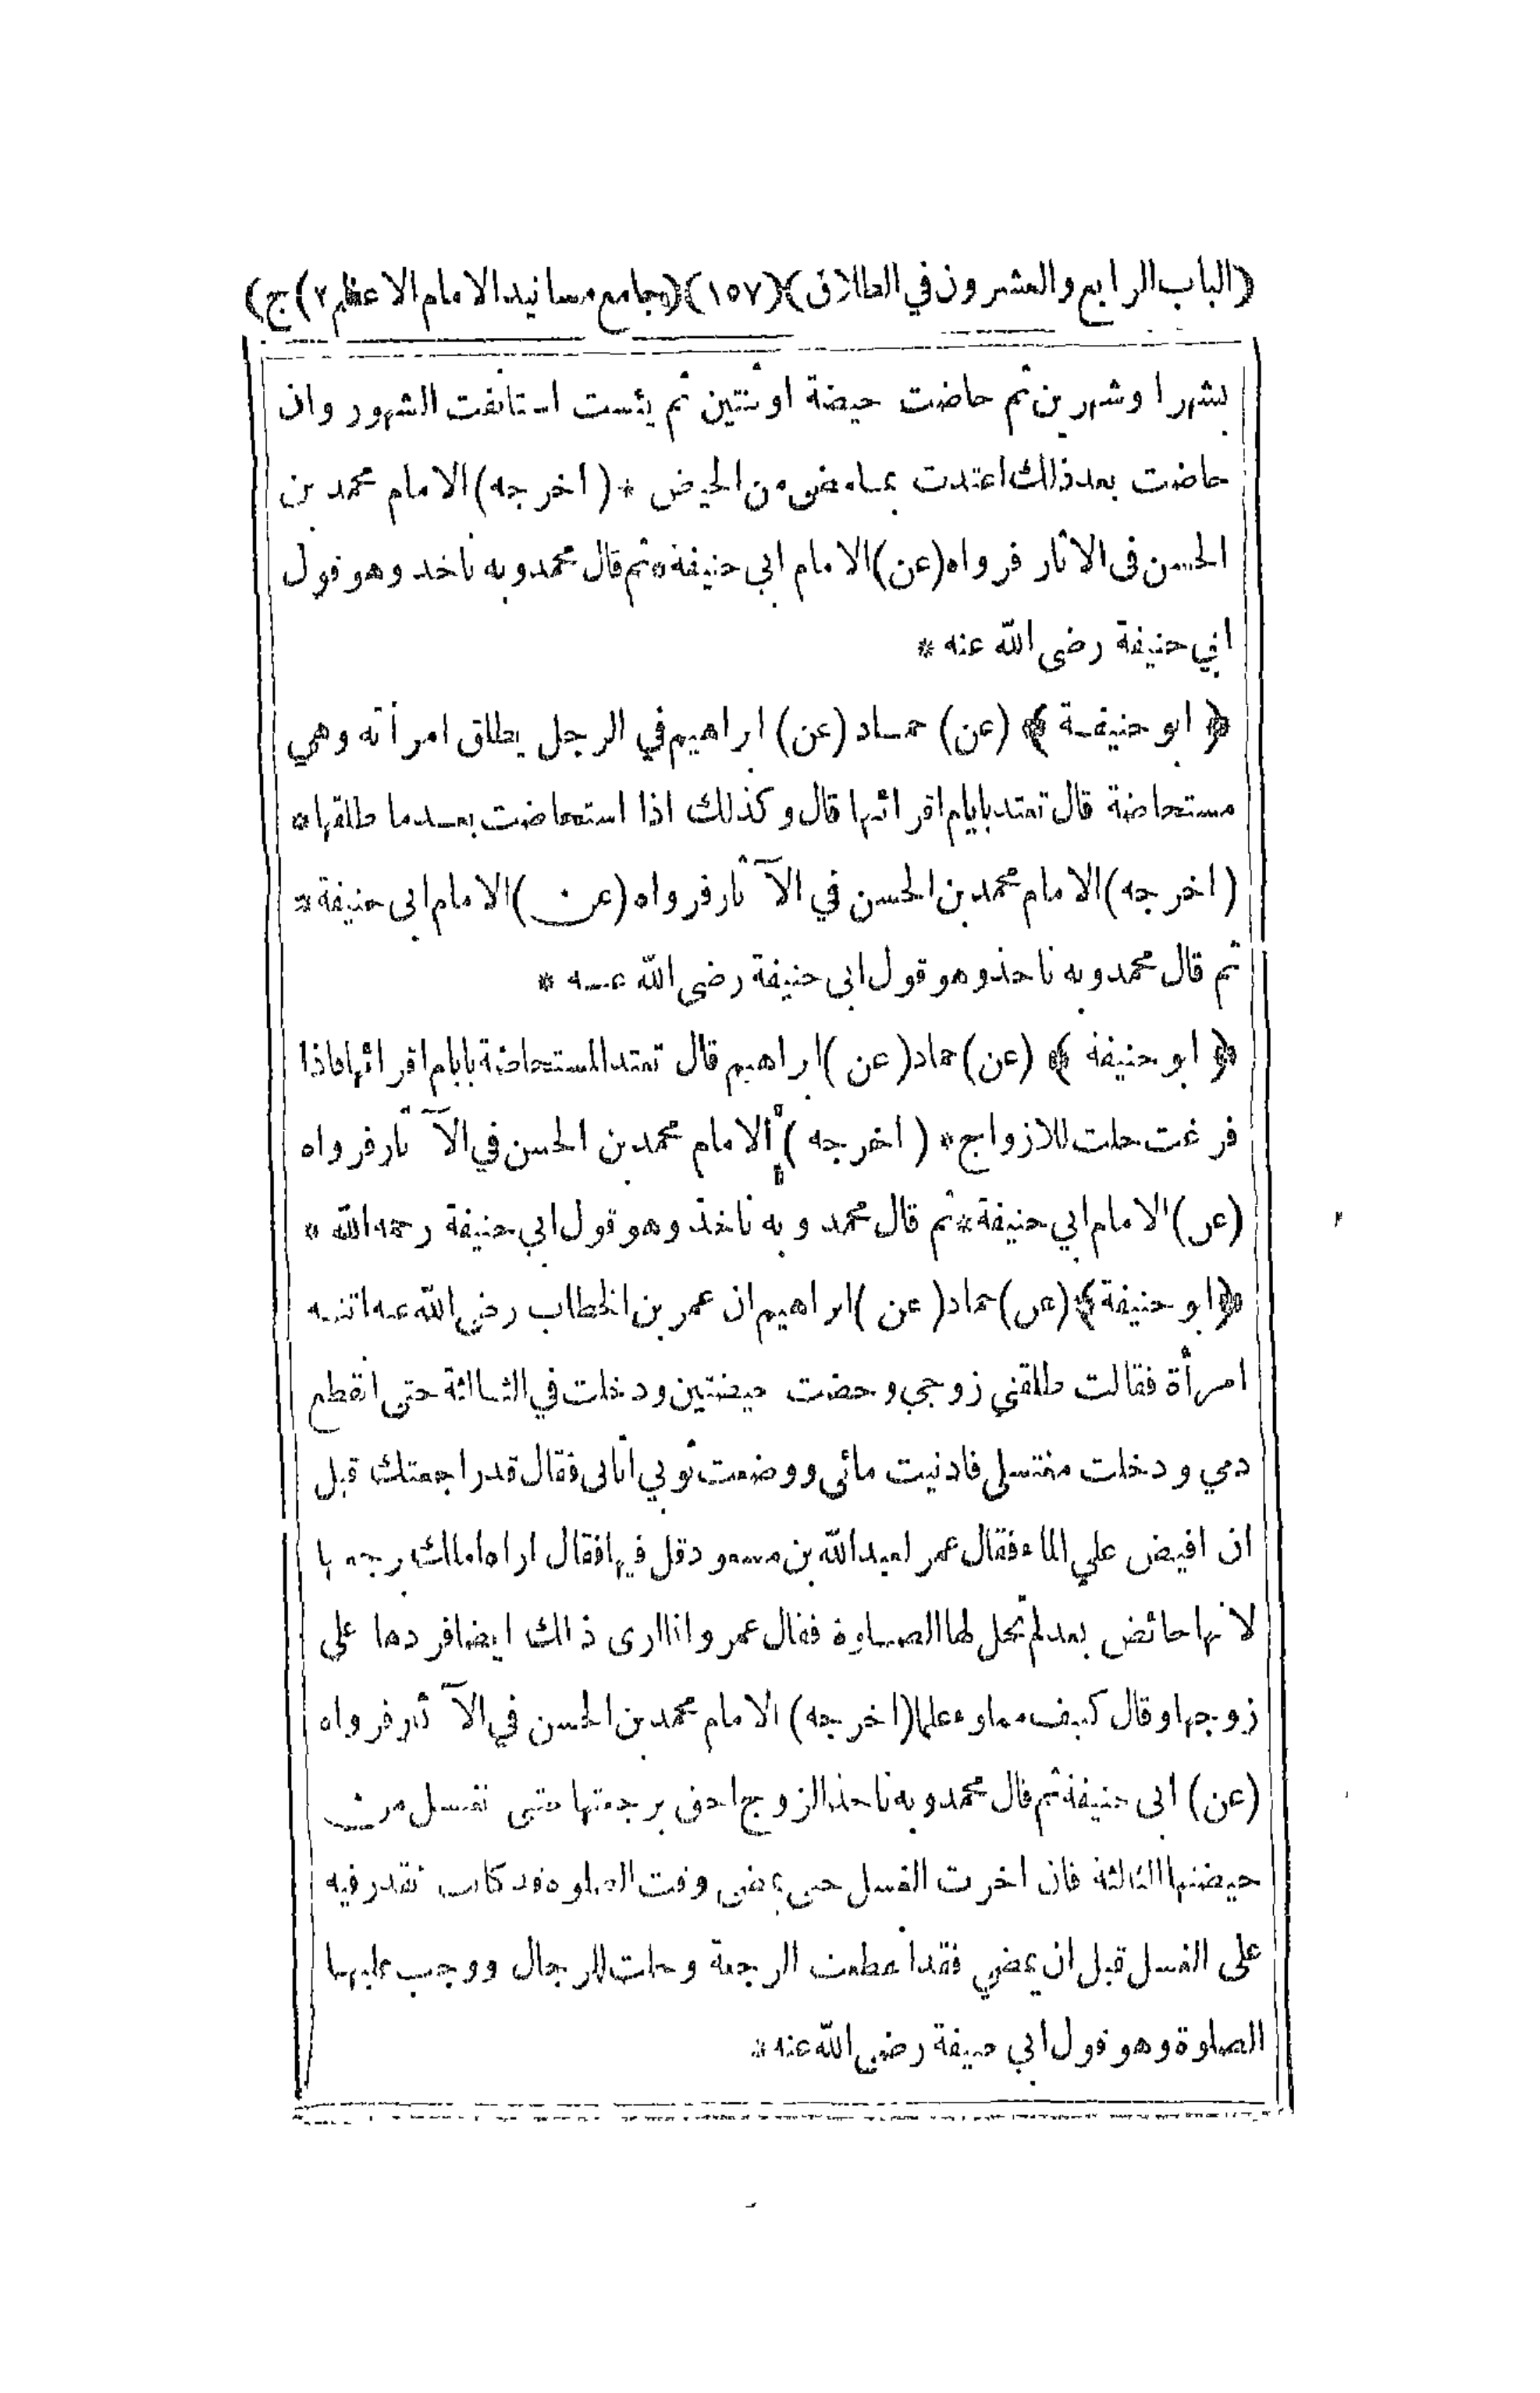 (الباب الرابع والعشرون في الطلاق) (١٥٧) (جامع مسانيد الامام الاعظم ٢) ج)
بشهرا وشهرين ثم حاضت حيضة او ثنتين ثم يئست استانفت الشهور وان
حاضت بعد ذلك اعتدت بما مضى من الحيض * (اخرجه) الامام محمد بن
الحسن فى الاثار فرواه (عن) الامام ابي حنيفة * ثم قال محمد وبه ناخذ وهو قول
ابي حنيفة رضى الله عنه *
﴿ ابو حنيفة ﴾ (عن) حماد (عن) ابراهيم في الرجل يطلق امرأته وهي
مستحاضة قال تعتد بايام اقرائها قال وكذلك اذا استحاضت بعد ما طلقها *
(اخرجه) الامام محمد بن الحسن في الآثار فرواه (عن) الامام ابى حنيفة *
ثم قال محمد وبه ناخذ وهو قول ابى حنيفة رضى الله عنه *
﴿ ابو حنيفة ﴾ (عن) حماد (عن) ابراهيم قال تعتد المستحاضة بايام اقرائها فاذا
فرغت حلت للازواج * (اخرجه) الامام محمد بن الحسن في الآثار فرواه
(عن) الامام ابي حنيفة * ثم قال محمد وبه ناخذ وهو قول ابي حنيفة رحمه الله *
﴿ ابو حنيفة ﴾ (عن) حماد (عن) ابراهيم ان عمر بن الخطاب رضي الله عنه اتته
امرأة فقالت طلقني زوجي وحضت حيضتين ودخلت في الثالثة حتى انقطع
دمي ودخلت مغتسلى فادنيت مائى ووضعت ثوبي اتانى فقال قد راجعتك قبل
ان افيض علي الماء فقال عمر لعبد الله بن مسعود قل فيها فقال اراه املك برجعتها
لانها حائض بعد لم تحل لها الصلوة فقال عمر وانا ارى ذالك ايضا فردها على
زوجها وقال كنيف مملوء علما (اخرجه) الامام محمد بن الحسن في الآثار فرواه
(عن) ابى حنيفة ثم قال محمد وبه ناخذ الزوج احق برجعتها حتى تغتسل من
حيضتها الثالثة فان اخرت الغسل حتى يمضى وقت الصلوة قد كانت تقدر فيه
على الغسل قبل ان يمضي فقد انقطعت الرجعة وحلت للرجال ووجب عليها
الصلوة وهو قول ابي حنيفة رضي الله عنه *